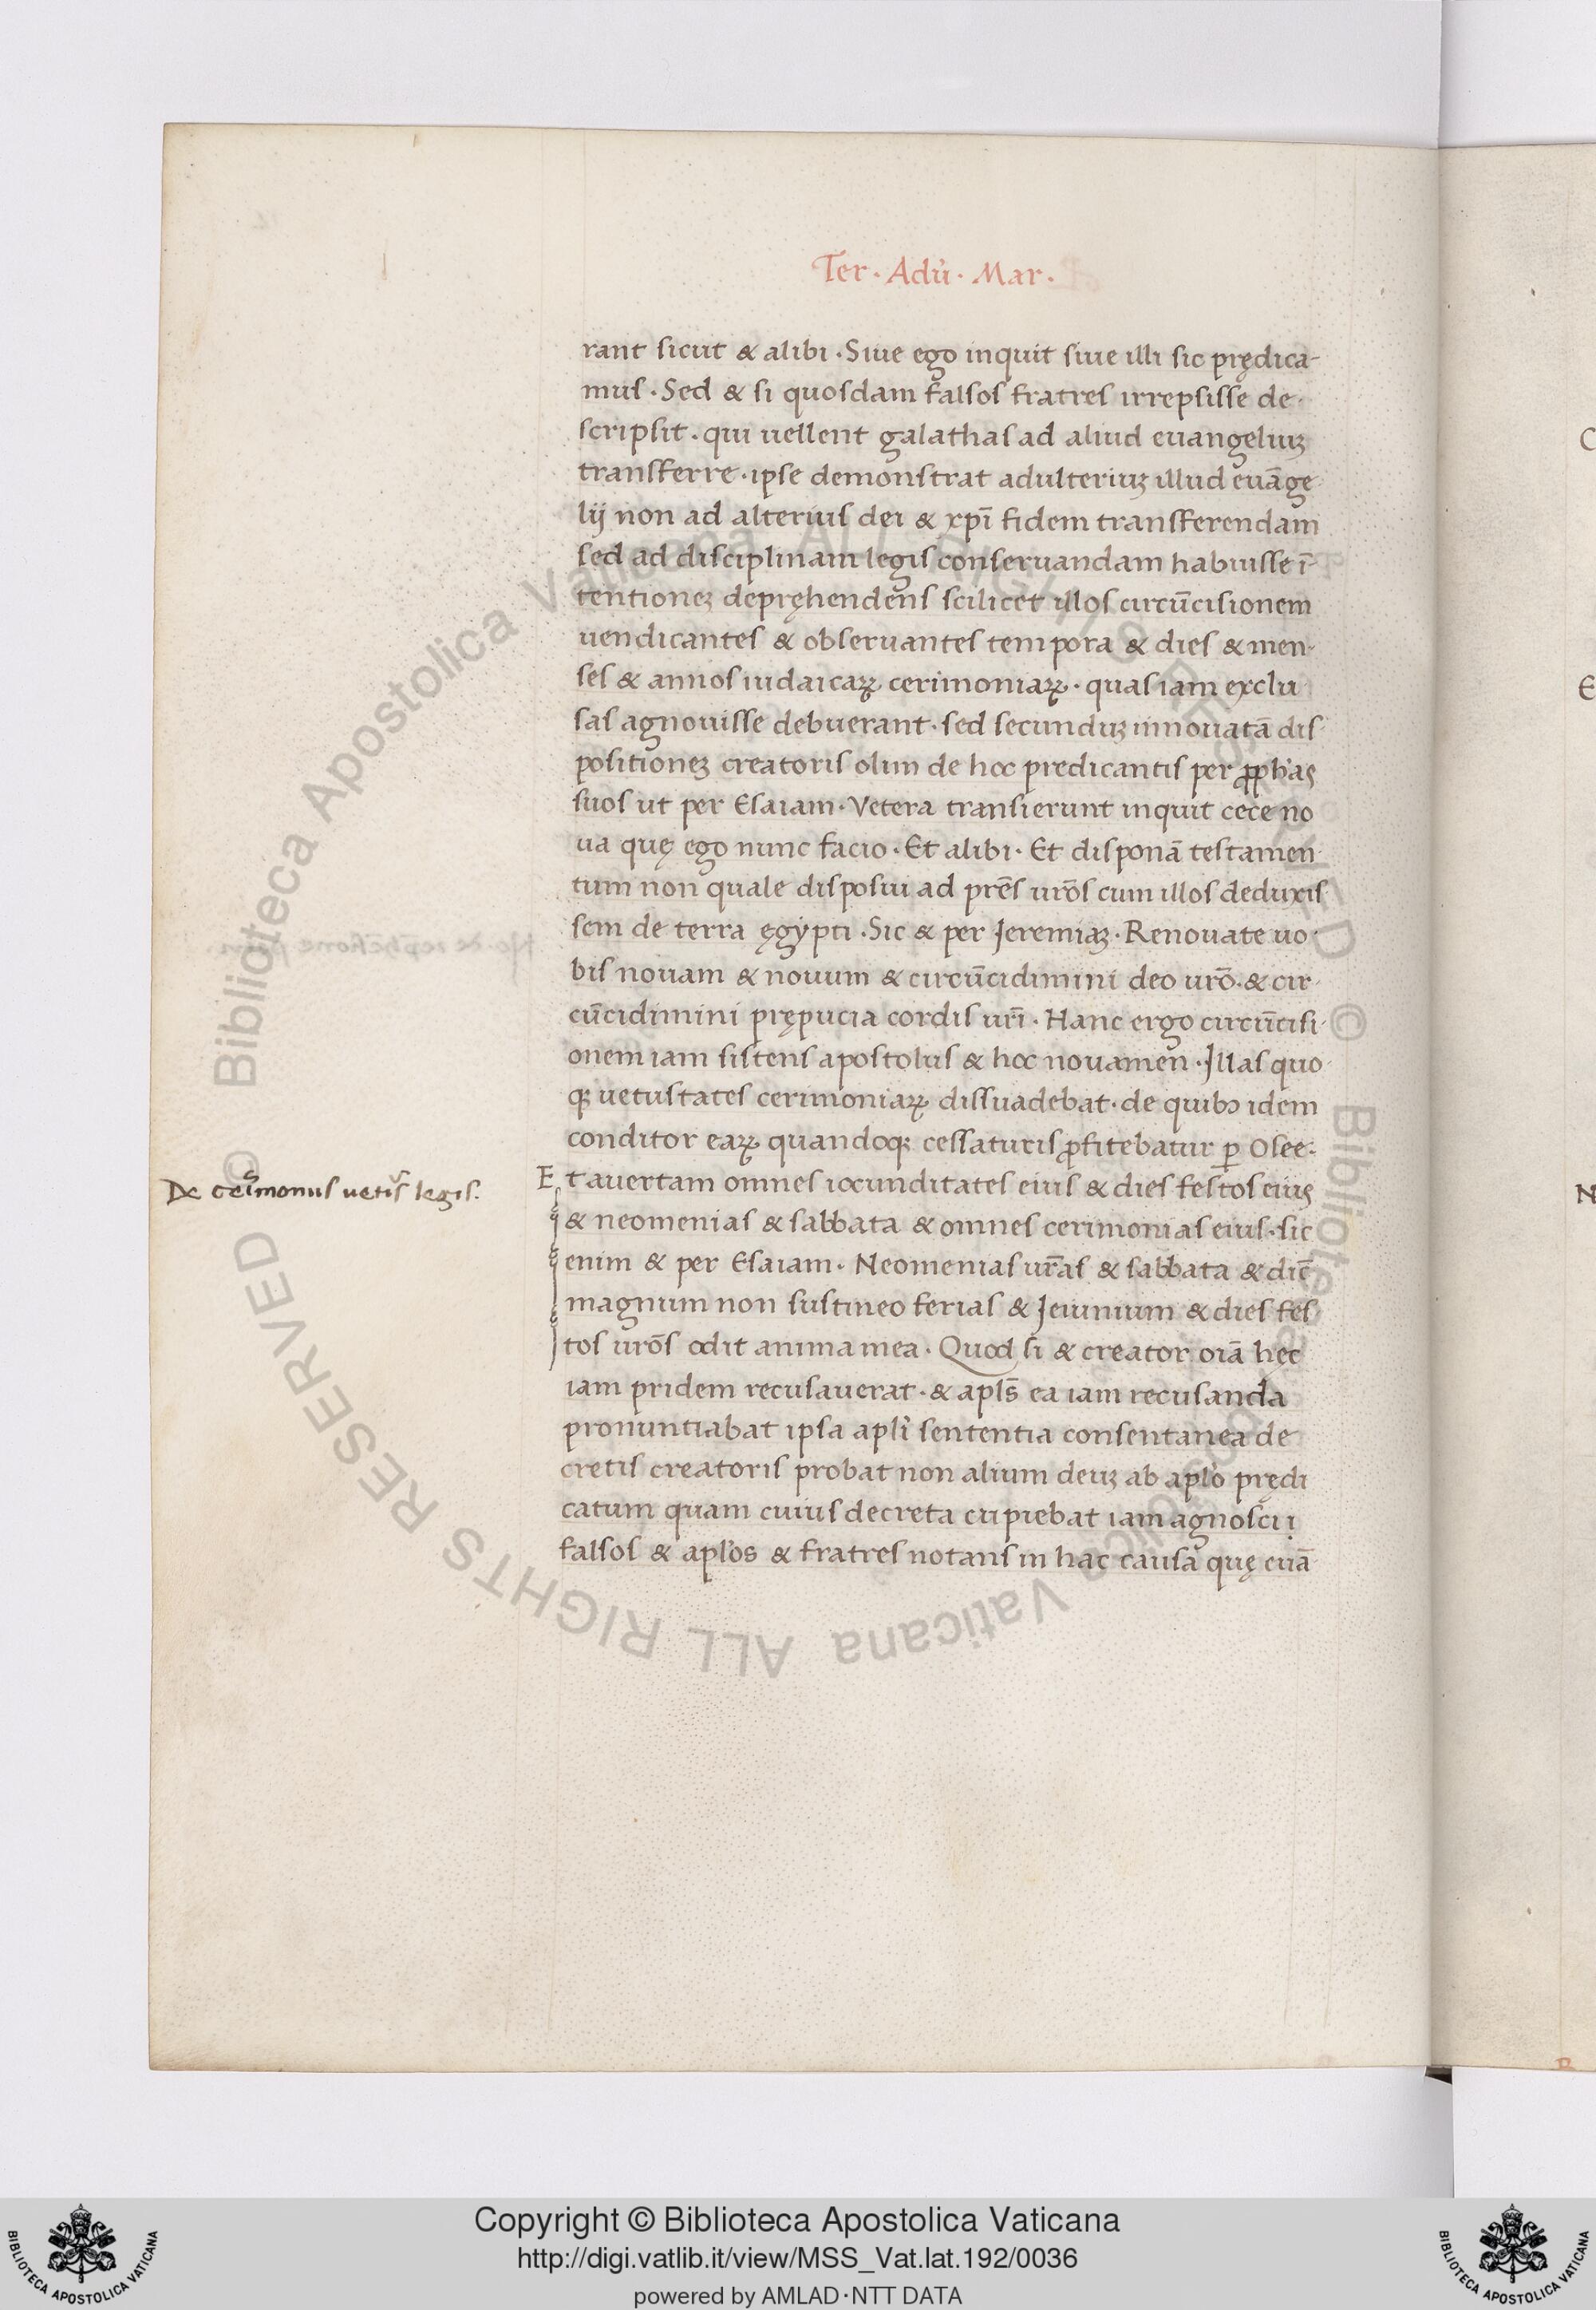 Ter. Adū. Mar.
rant sicut & alibi. Siue ego inquit siue illi sic prędica-
mus. Sed & si quosdam falsos fratres irrepsisse de-
scripsit. qui uellent galathas ad aliud euangeliuꝫ
transferre. ipse demonstrat adulteriuꝫ illud euāge-
lij non ad alterius dei & xpī fidem transferendam
sed ad disciplinam legis conseruandam habuisse ī-
tentioneꝫ depręhendens scilicet illos circūcisionem
uendicantes & obseruantes tempora & dies & men-
ses & annos iudaicaꝝ cerimoniaꝝ. quas iam exclu
sas agnouisse debuerant. sed secunduꝫ innouatā dis-
positioneꝫ creatoris olim de hoc predicantis per ꝓphas
suos ut per Esaiam. Vetera transierunt inquit ecce no
ua quę ego nunc facio. Et alibi. Et disponā testamen-
tum non quale disposui ad prēs urōs cum illos deduxis-
sem de terra ęgypti. Sic & per Jeremiaꝫ. Renouate uo-
bis nouam & nouum & circūcidimini deo urō. & cir-
cūcidimini prępucia cordis urī. Hanc ergo circūcisi-
onem iam sistens apostolus & hoc nouamen. Illas quo-
qꝫ uetustates cerimoniaꝝ dissuadebat. de quibꝰ idem
conditor eaꝝ quandoqꝫ cessaturis ꝓfitebatur ꝑ Osee.
De cerimoniis uetis legis.
Et auertam omnes iocunditates eius & dies festos eius
& neomenias & sabbata & omnes cerimonias eius. sic
enim & per Esaiam. Neomenias urās & sabbata & diē
magnum non sustineo ferias & Jeiunium & dies fes
tos urōs odit anima mea. Quod si & creator oīa hec
iam pridem recusauerat. & apls̄ ea iam recusanda
pronuntiabat ipsa apli sententia consentanea de
cretis creatoris probat non alium deuꝫ ab aplo prędi
catum quam cuius decreta cupiebat iam agnosci i
falsos & aplos & fratres notans in hac causa quę euā
Copyright © Biblioteca Apostolica Vaticana
http://digi.vatlib.it/view/MSS_Vat.lat.192/0036
powered by AMLAD·NTT DATA